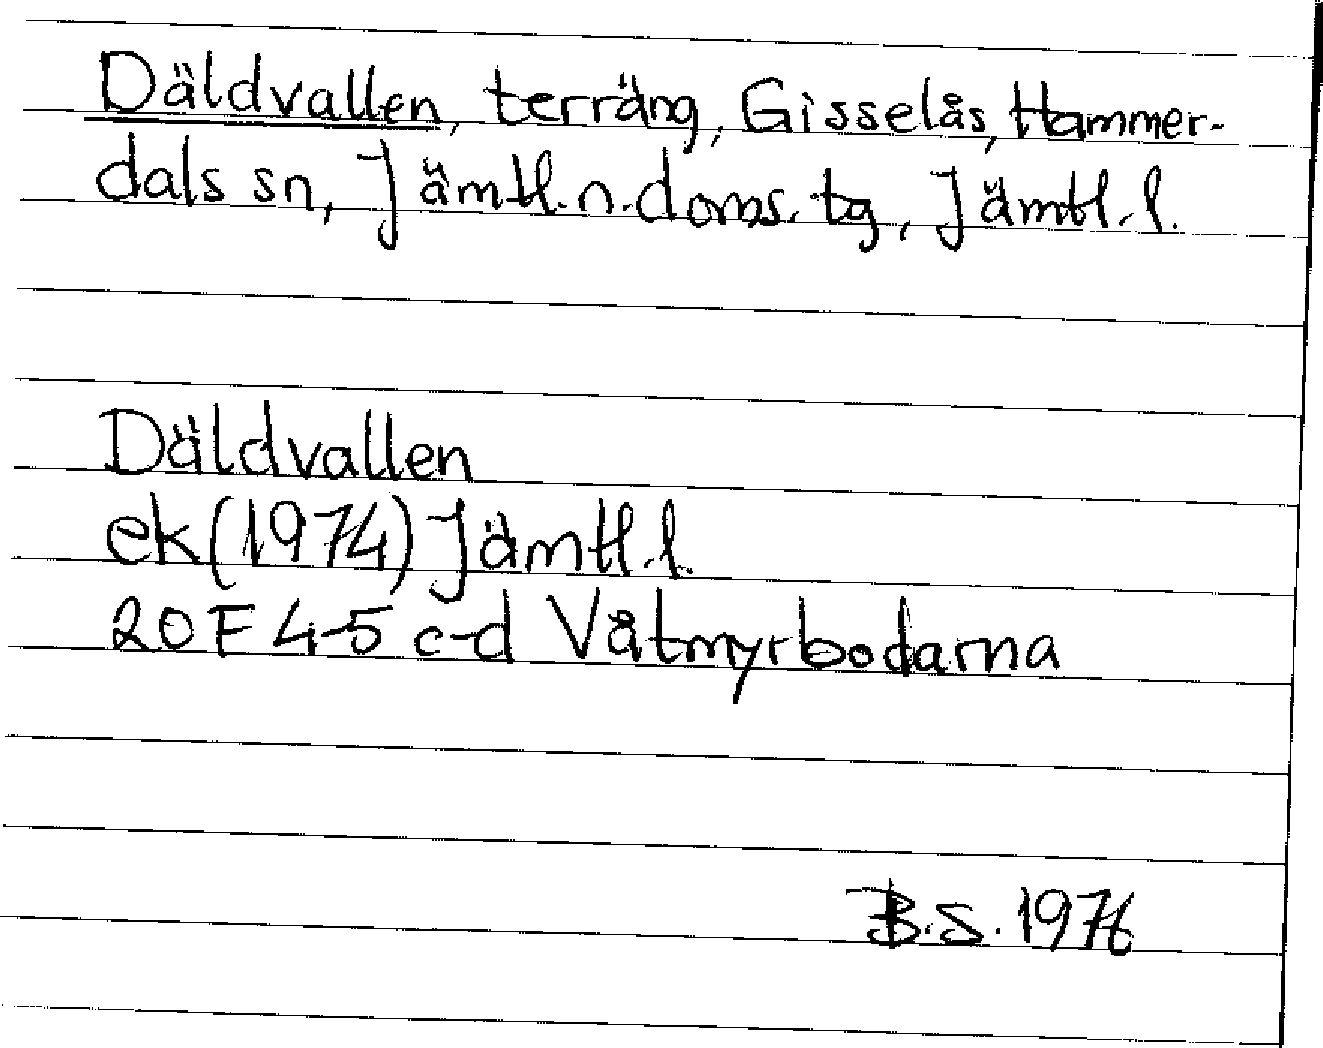 Däldvallen, terräng, Gisselås, Hammer-
dals sn, Jämtl.n.doms.tg, Jämtl.l.
Däldvallen
ek (1974) Jämtl.l.
20F 4-5 c-d Våtmyrbodarna
B.S. 1976